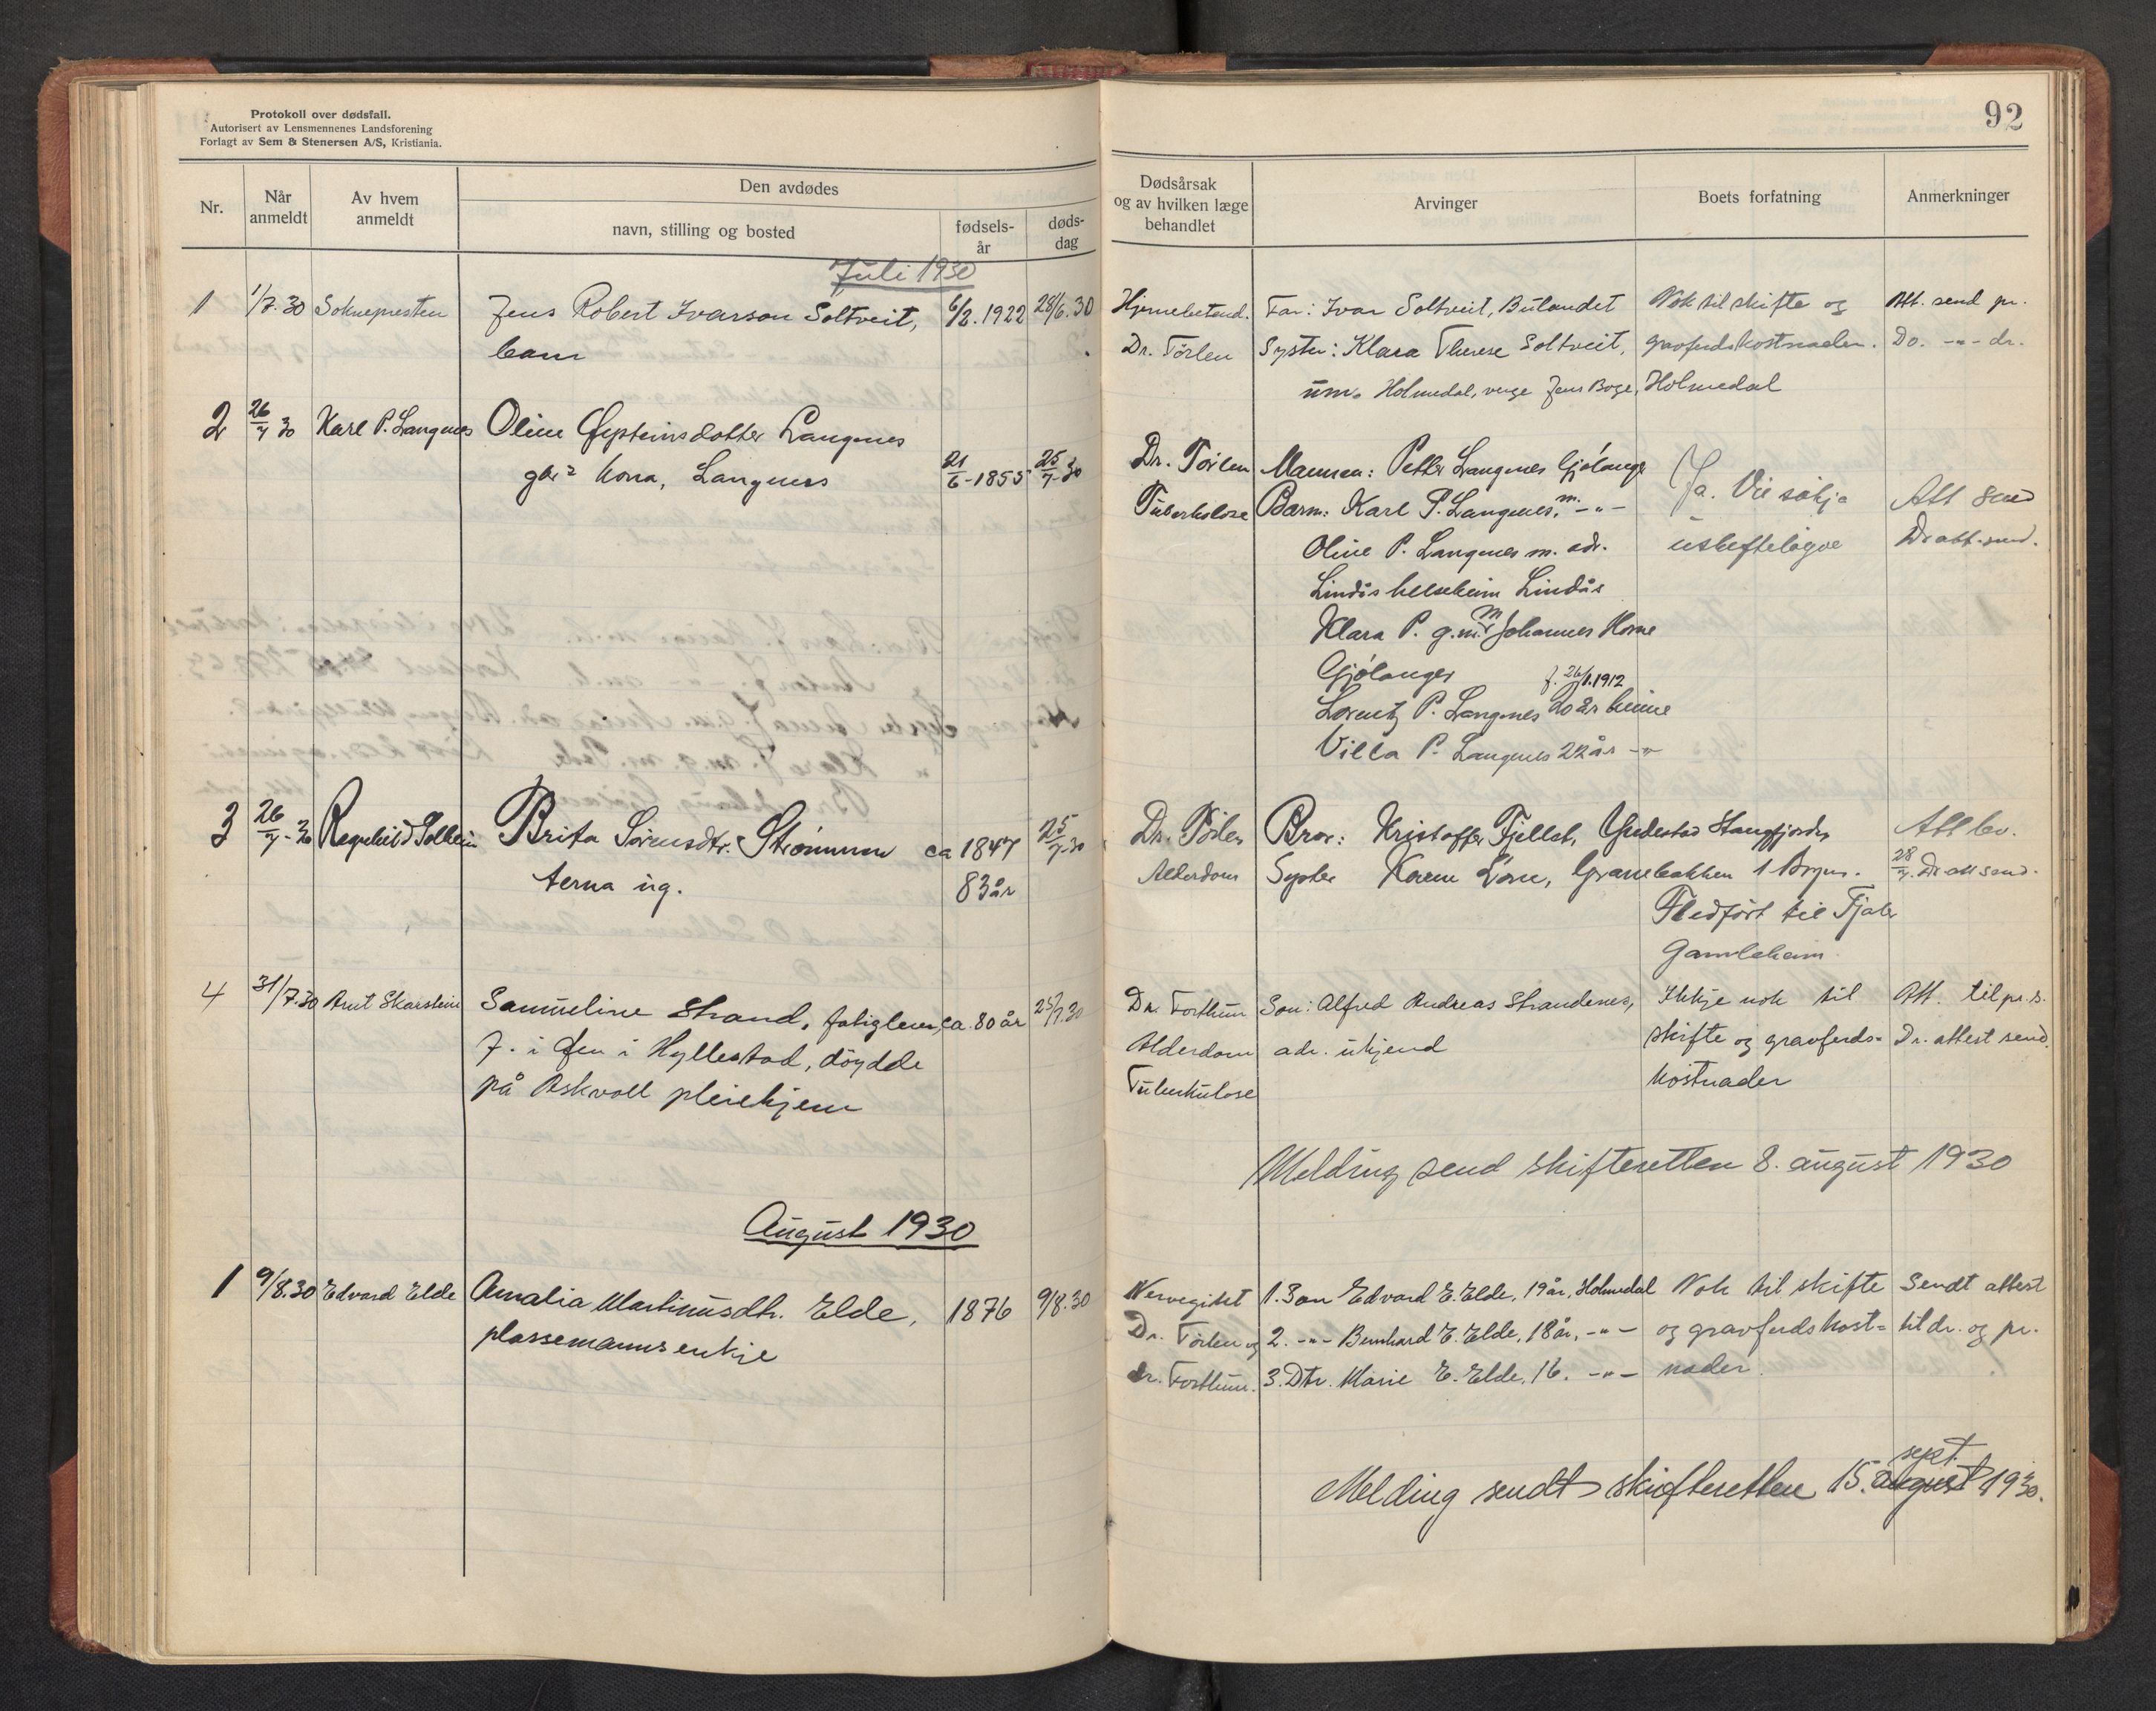 Protokoll over dødsfall.
Autorisert av Lensmennenes Landsforening
Forlagt av Sem & Stenersen A/S, Kristiania.
Nr.
Når anmeldt
Av hvem anmeldt
Den avdødes
navn, stilling og bosted
fødsels-år
døds-dag
Juli 1930
1 1/7.30 Soknepresten Jens Robert Ivarson Soltveit, 6/2.1922 28/6.30
barn
2 26/7 30 Karl P. Langnes Oline Øysteinsdotter Langnes
kona, Langnes 21/6-1855 25/7-30
3 26/7-30 Ragnhild Solheim Brita Sørensdtr. Strömmen ca 1847 25/7-30
terna ug. 83 år
4 31/7.30 Anut Skarstein Samueline Strand, fatiglem, ca. 80 år 25/7.30
f. i Øen i Hyllestad, döydde
på Askvoll pleiehjem
August 1930
1 9/8.30 Edvard Elde Amalia Martinusdtr. Elde, 1876 9/8.30
plassemannsenkje
92
Dødsårsak
og av hvilken læge
behandlet
Arvinger
Boets forfatning
Anmerkninger
Hjernebetend. Far: Ivar Soltveit, Bulandet Nok til skifte og Att. send pr.
Dr. Torlen Syster: Klara Therese Soltveit, gravferdskostnader. Do. -"- dr.
um. Holmedal, verge Jens Boge, Holmedal
Dr. Torlen Mannen: Petter Langnes Gjölanger Ja. Vil søkje
Tuberkulose Barn: Karl P. Langnes, m. -"- Att send
Oline P. Langnes m. adr. uskifteløyve Dr att. send.
Lindås helseheim Lindås
Klara P. g.m. Johannes Horne
Gjölanger f. 26/1.1912
Lorentz P. Langnes 20 år heime
Villa P. Langnes 22 år -"-
Dr. Torlen Bror: Kristoffer Fjellet, Yndestad Stangfjorden Att lev.
Alderdom Syster Karen Losne, Granebakken 1 28/7. Dr att send.
Fledfört til Fjaler
Gamleheim
Dr. Forthun Son: Alfred Andreas Strandenes, Ikkje nok til Att. til pr. s.
Alderdom adr. ukjend skifte og gravferds- Dr. attest send.
Tuberkulose kostnader
Melding send skifteretten 8. august 1930
Nervegikt 1. Son Edvard E. Elde, 19 år, Holmedal Nok til skifte Sendt attest
Dr. Torlen og 2. -"- Bernhard E. Elde, 18 år, -"- og gravferdskost- til dr. og pr.
dr. Forthun. 3. Dtr. Marie E. Elde, 16. -"- nader.
sept.
Melding sendt skifteretten 15. august 1930.